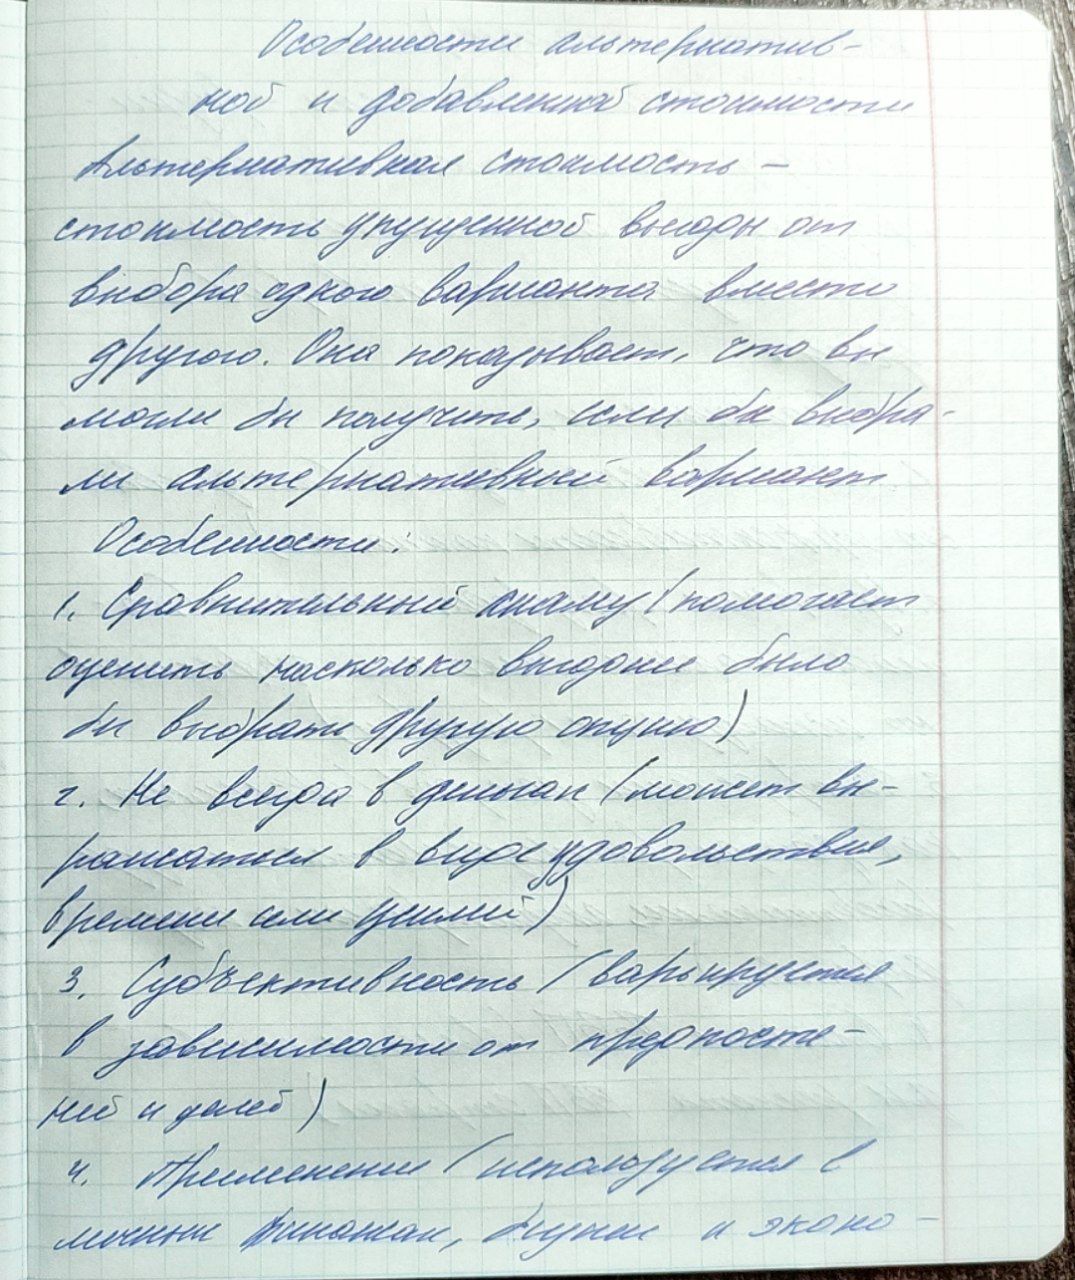 Особенности альтернатив-
ной и добавленной стоимости
Альтернативная стоимость -
стоимость упущенной выгоды от
выбора одного варианта вместо
другого. Она показывает, что вы
могли бы получить, если бы выбра-
ли альтернативный вариант
Особенности:
1. Сравнительный анализ (помогает
оценить насколько выгодне было
бы выбрать другую опцию)
2. Не всегда в деньгах (может вы-
ражаться в виде удовольствия,
времени или усилий)
3. Субъективность (варьируется
в зависимости от предпочте-
ний и целей)
4. Применение (используется в
личных финансах, бизнесе и эконо-